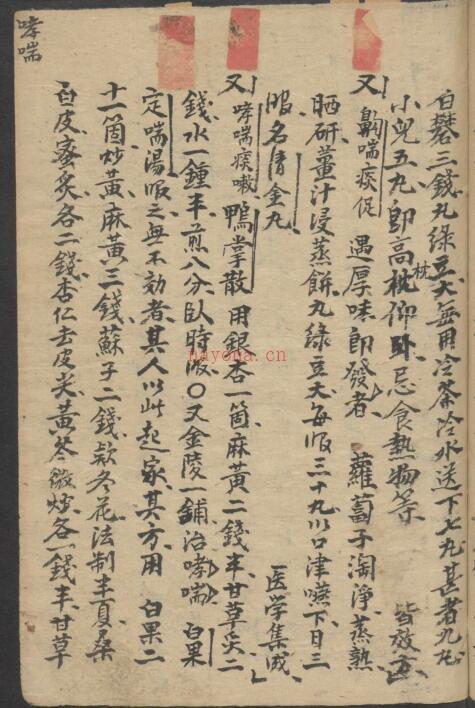 哮喘
白礬三錢丸綠豆大每用冷茶冷水送下七丸甚者九丸
小兒五丸即高枕仰卧忌食熱物等 皆效方
枕
又 齁喘痰促 遇厚味即發者 蘿蔔子淘淨蒸熟
晒研薑汁浸蒸餅丸綠豆大每服三十丸以口津嚥下日三
服名清金丸 医学集成
又 哮喘痰嗽 鴨掌散 用銀杏一箇麻黃二錢半甘草炙二
錢水一鍾半煎八分卧時服〇又金陵一鋪治哮喘 白果
定喘湯服之無不効者其人以此起家其方用 白果二
十一箇炒黃麻黃三錢蘇子二錢款冬花法制半夏桑
白皮蜜炙各二錢杏仁去皮尖黃芩微炒各一錢半甘草
nayona.cn